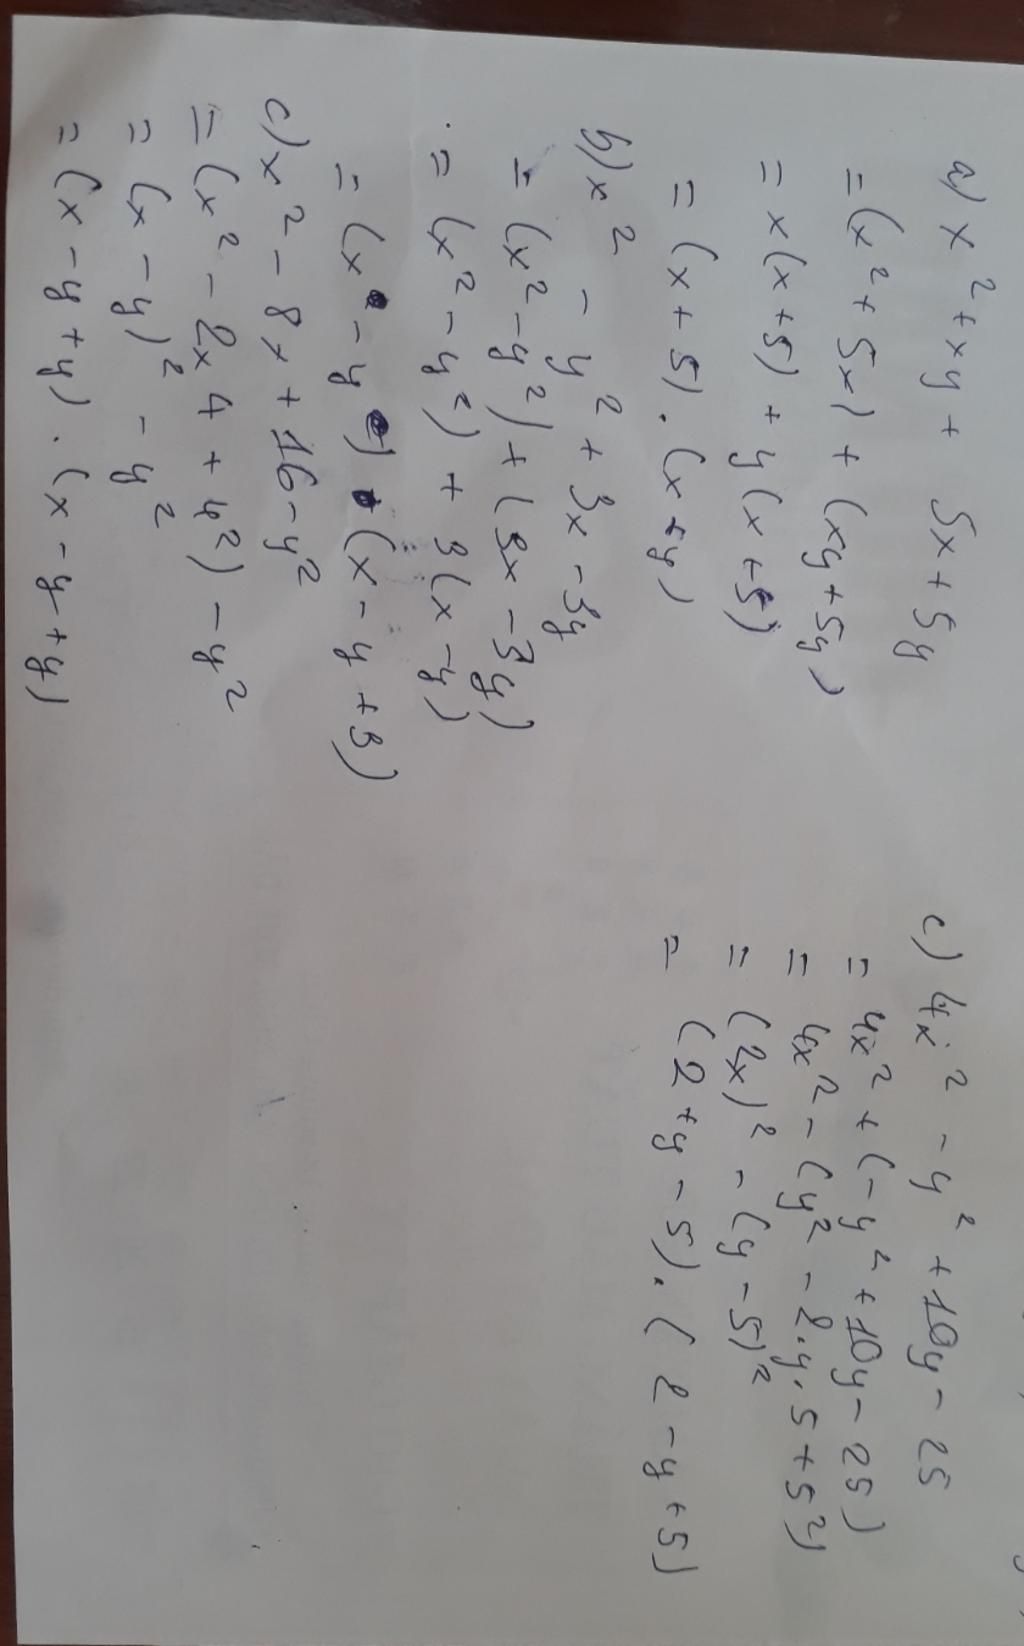 a) x² + xy + 5x + 5y
= (x² + 5x) + (xy + 5y)
= x(x + 5) + y(x + 5)
= (x + 5) . (x + y)
b) x² - y² + 3x - 3y
= (x² - y²) + (3x - 3y)
= (x² - y²) + 3(x - y)
= (x - y) (x - y + 3)
c) x² - 8x + 16 - y²
= (x² - 2x 4 + 4²) - y²
= (x - y)² - y²
= (x - y + y) . (x - y + y)
c) 4x² - y² + 10y - 25
= 4x² + (-y² + 10y - 25)
= 4x² - (y² - 2.y.5 + 5²)
= (2x)² - (y - 5)²
= (2 + y - 5) . (2 - y + 5)